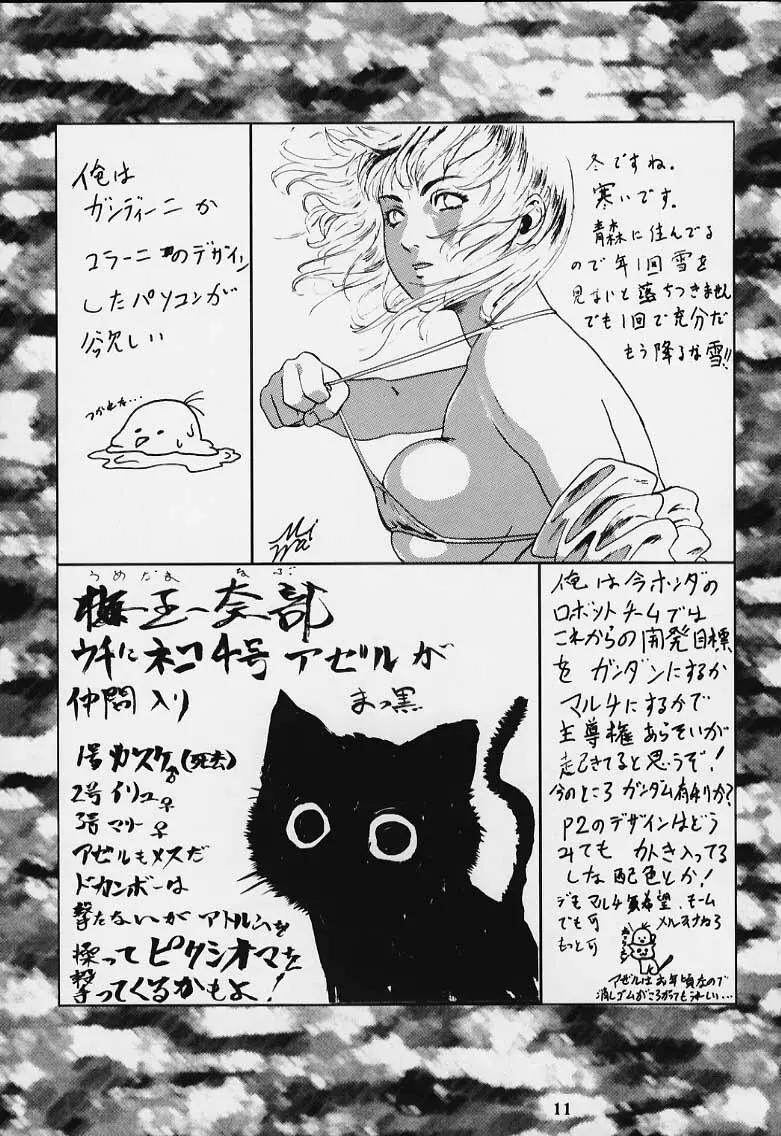 冬ですね。
寒いです。
青森に住んでる
ので年1回雪を
見ないと落ちつきません
でも1回で充分だ
もう降るな雪!!
俺は
ガンディーニか
コラーニのデザイン
したパソコンが
欲しい
つかれた…
うめだま なぶ
梅玉奈部
ウチにネコ4号アゼルが
仲間入り
まっ黒
1号カスケ♂(死去)
2号イリュ♀
3号マリー♀
アゼルもメスだ
ドカンボーは
撃たないがアトルムを
操ってピクシオマを
撃ってくるかもよ!
俺は今ホンダの
ロボットチームでは
これからの開発目標
をガンダンにするか
マルチにするかで
主導権あらそいが
起きてると思うぞ!
今のところガンダム有利か?
P2のデザインはどう
みてもカトキ入ってる
しな配色とか!
デモマルチ
希望、モーム
でも可
メルスナねろ
もっと可
アゼルはお年頃なので
消しゴムがころがってもうれしい…
11